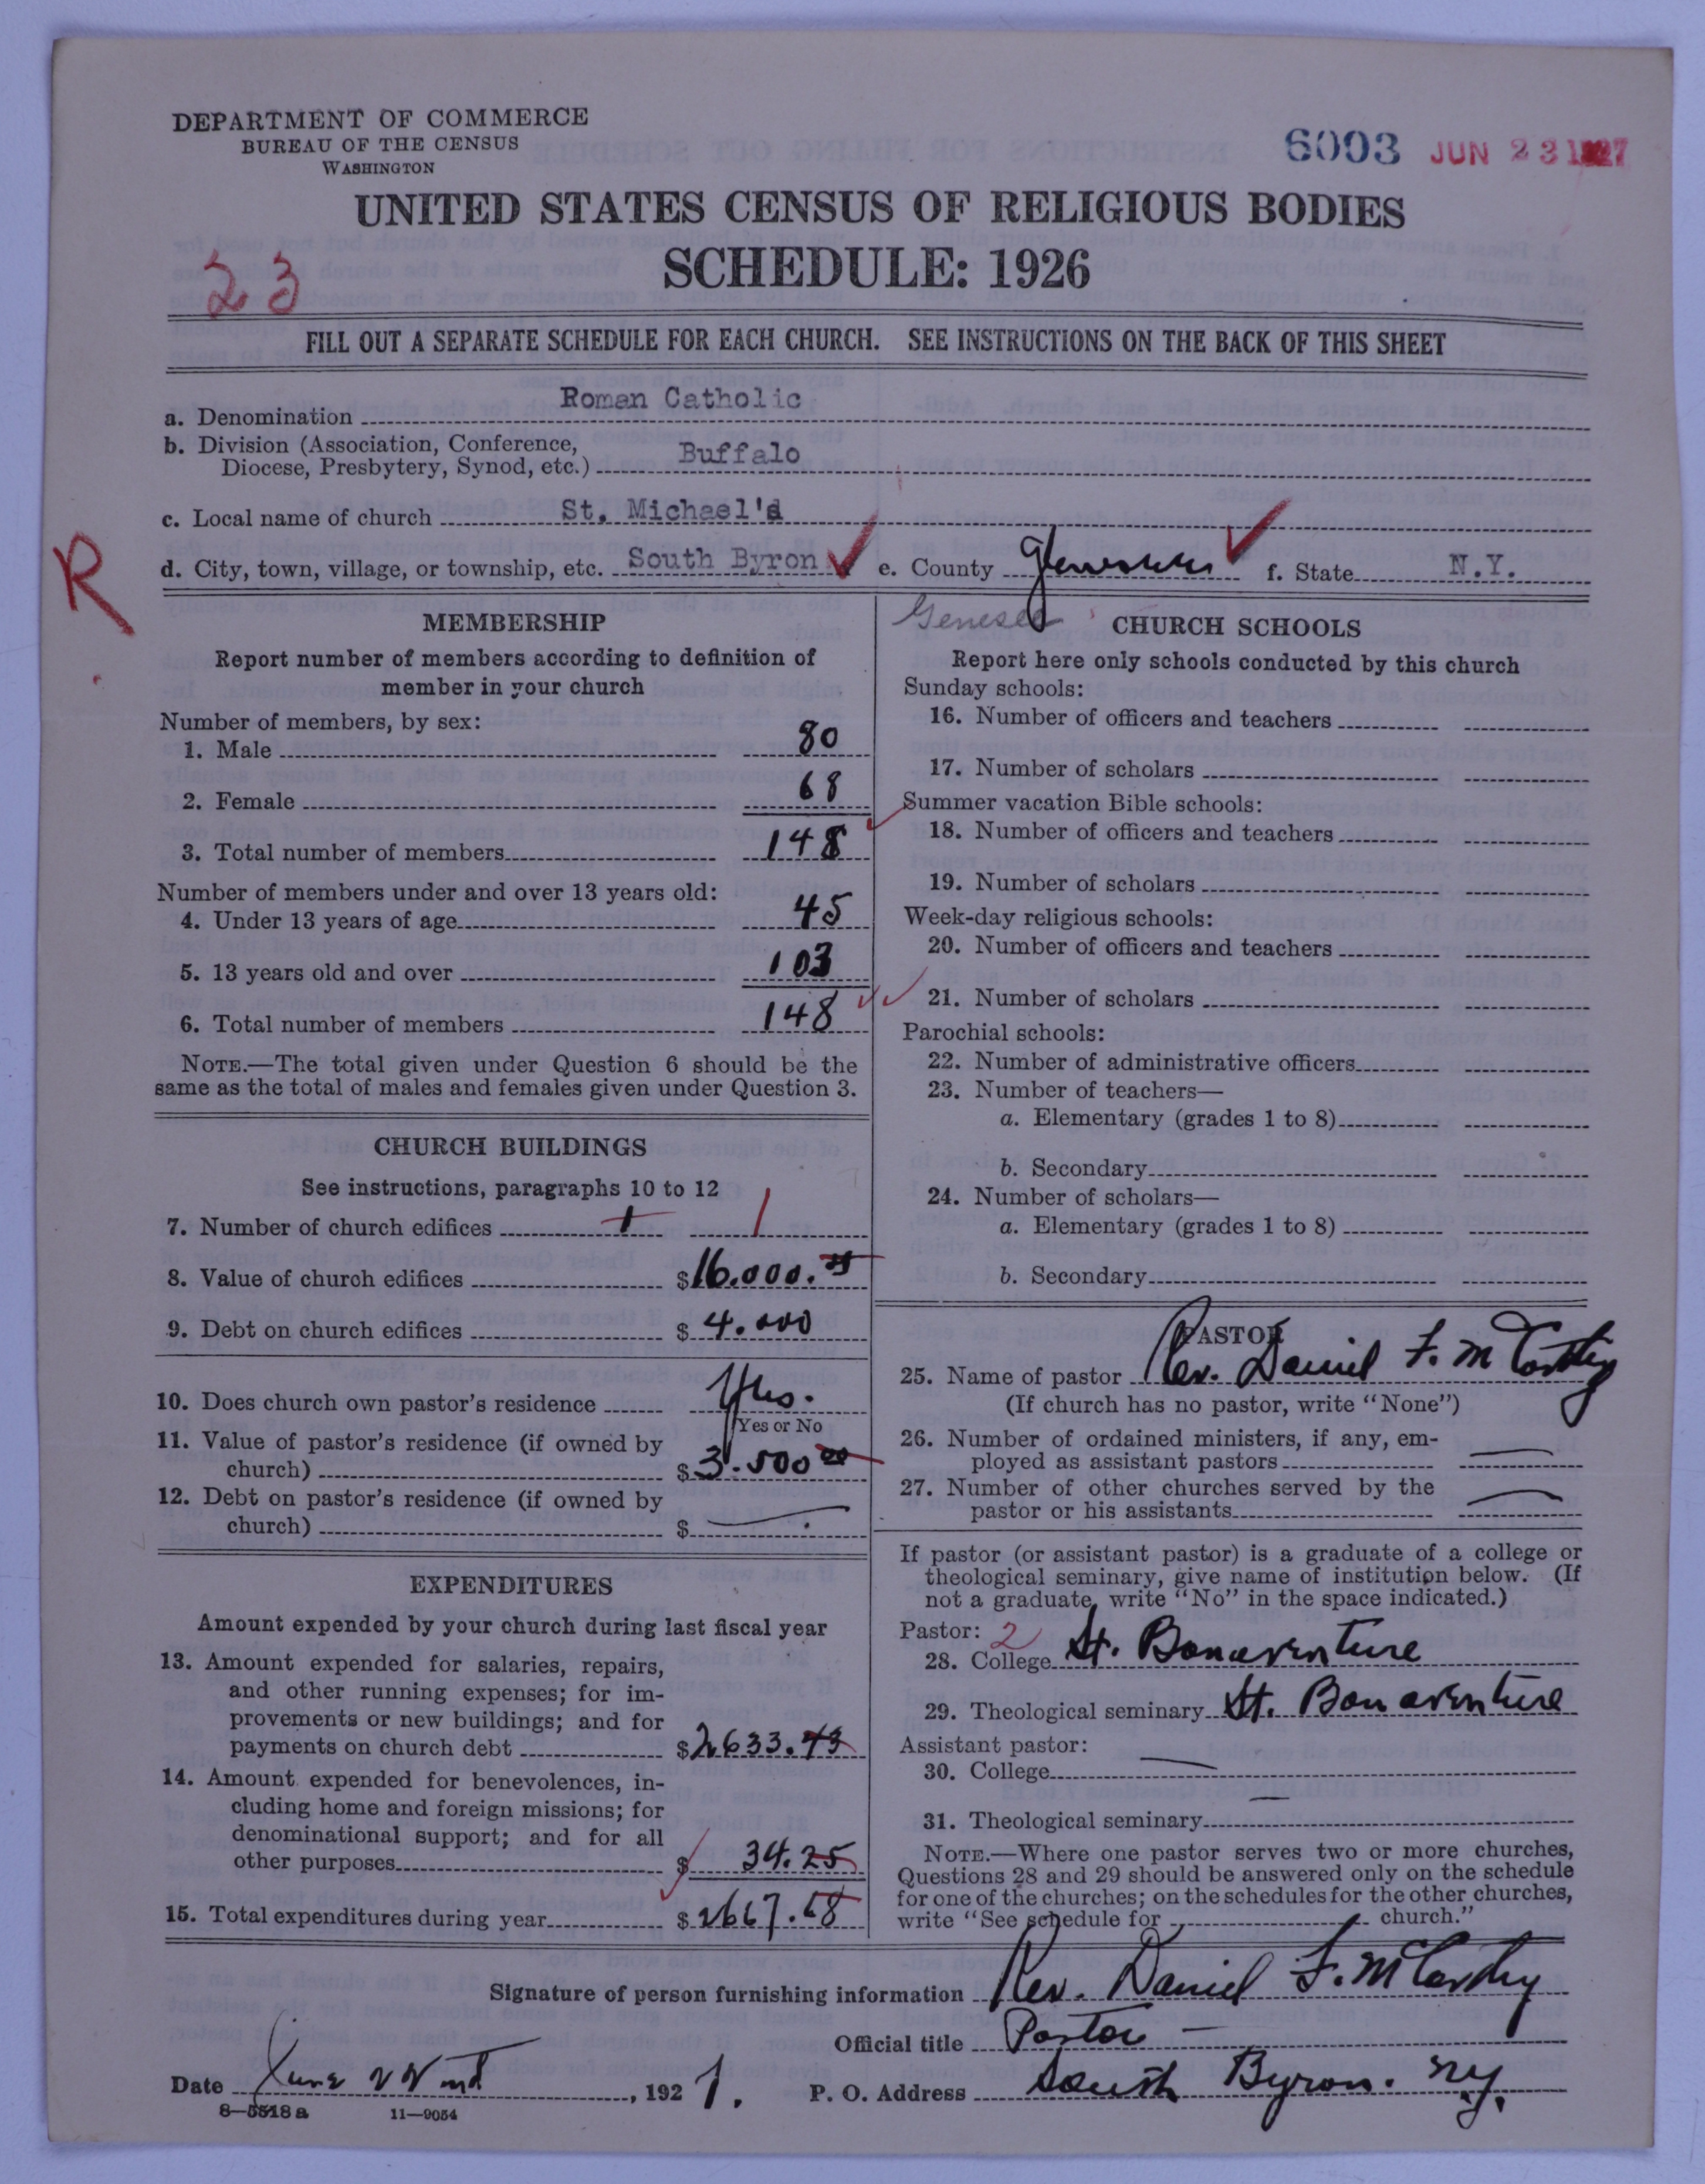 DEPARTMENT OF COMMERCE
BUREAU OF THE CENSUS
WASHINGTON
6003 JUN 23 1927
UNITED STATES CENSUS OF RELIGIOUS BODIES
SCHEDULE: 1926
23
FILL OUT A SEPARATE SCHEDULE FOR EACH CHURCH. SEE INSTRUCTIONS ON THE BACK OF THIS SHEET
a. Denomination Roman Catholic
b. Division (Association, Conference,
Diocese, Presbytery, Synod, etc.) Buffalo
c. Local name of church St. Michael's
R
d. City, town, village, or township, etc. South Byron e. County f. State N.Y.
Genesee
MEMBERSHIP
Report number of members according to definition of
member in your church
Number of members, by sex:
1. Male 80
2. Female 68
3. Total number of members 148
Number of members under and over 13 years old:
4. Under 13 years of age 45
5. 13 years old and over 103
6. Total number of members 148
NOTE.—The total given under Question 6 should be the
same as the total of males and females given under Question 3.
CHURCH BUILDINGS
See instructions, paragraphs 10 to 12
7. Number of church edifices 1 1
8. Value of church edifices $16.000.
9. Debt on church edifices $ 4.000
10. Does church own pastor's residence Yes.
Yes or No
11. Value of pastor's residence (if owned by
church) $3.500 00
12. Debt on pastor's residence (if owned by
church) $ —.
EXPENDITURES
Amount expended by your church during last fiscal year
13. Amount expended for salaries, repairs,
and other running expenses; for im-
provements or new buildings; and for
payments on church debt $2633.43
14. Amount expended for benevolences, in-
cluding home and foreign missions; for
denominational support; and for all
other purposes $ 34.25
15. Total expenditures during year $2667.68
CHURCH SCHOOLS
Report here only schools conducted by this church
Sunday schools:
16. Number of officers and teachers
17. Number of scholars
Summer vacation Bible schools:
18. Number of officers and teachers
19. Number of scholars
Week-day religious schools:
20. Number of officers and teachers
21. Number of scholars
Parochial schools:
22. Number of administrative officers
23. Number of teachers—
a. Elementary (grades 1 to 8)
b. Secondary
24. Number of scholars—
a. Elementary (grades 1 to 8)
b. Secondary
PASTOR
25. Name of pastor Rev. Daniel F. McCarthy
(If church has no pastor, write "None")
26. Number of ordained ministers, if any, em-
ployed as assistant pastors —
27. Number of other churches served by the
pastor or his assistants —
If pastor (or assistant pastor) is a graduate of a college or
theological seminary, give name of institution below. (If
not a graduate, write "No" in the space indicated.)
Pastor: 2
28. College St. Bonaventure
29. Theological seminary St. Bonaventure
Assistant pastor:
30. College —
31. Theological seminary —
NOTE.—Where one pastor serves two or more churches,
Questions 28 and 29 should be answered only on the schedule
for one of the churches; on the schedules for the other churches,
write "See schedule for church."
Signature of person furnishing information Rev. Daniel F. McCarthy
Official title Pastor —
Date June 22nd, 1927. P. O. Address South Byron. N.Y.
8—5518a 11—9054